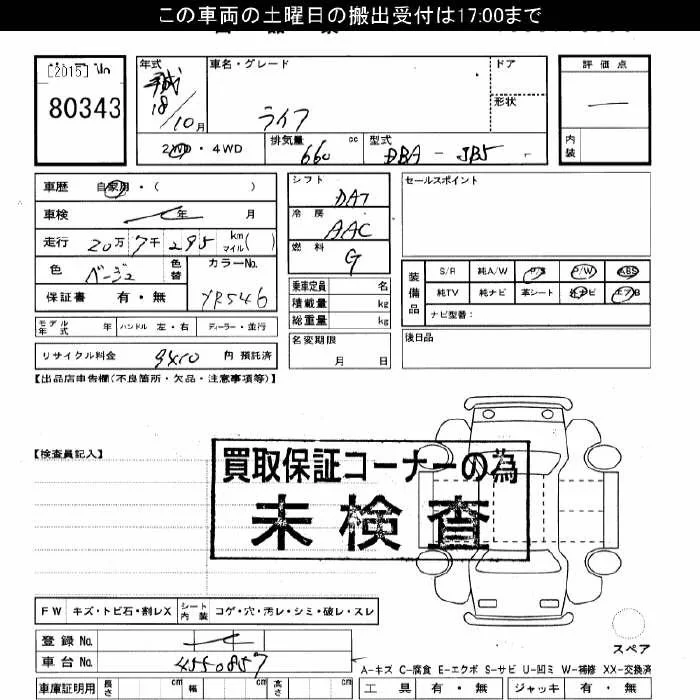 この車両の土曜日の搬出受付は17:00まで
[2015]
80343
年式
18/10月
車名・グレード
ライフ
ドア
形状
評価点
内装
2WD・4WD
排気量 660 cc
型式 DBA - JB5
車歴 自家用・( )
車検 年 月
走行 20万7千295 km マイル( )
色 ベージュ 色替
カラーNo. YR546
保証書 有・無
シフト DAT
冷房 AAC
燃料 G
乗車定員 名
積載量 kg
総重量 kg
セールスポイント
装備品
S/R 純A/W P/S P/W ABS
純TV 純ナビ 革シート 社ナビ エアB
ナビ型番:
モデル年式 年 ハンドル 左・右 ディーラー・並行
名変期限 月 日
後日品
リサイクル料金 9410 円 預託済
【出品店申告欄(不良箇所・欠品・注意事項等)】
【検査員記入】
買取保証コーナーの為
未検査
FW キズ・トビ石・割レX シート内装 コゲ・穴・汚レ・シミ・破レ・スレ
登録No.
車台No. 4550857
スペア
A-キズ C-腐食 E-エクボ S-サビ U-凹ミ W-補修 XX-交換済
車庫証明用 長さ cm 幅 cm 高さ cm
工具 有・無 ジャッキ 有・無